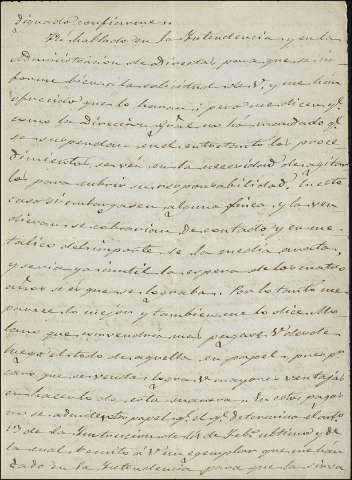 dignado confiarme.
He hablado en la Intendencia y en la
Administracion de Directas para que se in
forme bien la solicitud de V. y me han
ofrecido que lo haran; pero me dicen q.e
como la Direccion gral no há mandado q.e
se suspendan en el entretanto los proce
dimientos se ven en la necesidad de agitar
los para cubrir su responsabilidad. En este
caso si embargasen alguna finca, y la ven
dieran se cobrarian de contado y en me
talico del importe de la media anata,
y seria ya inutil la espera de los cuatro
años si es que se lograba. Por lo tanto me
parece lo mejor y tambien me lo dice
que convendria mas pagase V. desde
luego el todo de aquella en papel, pues
que se vende; logra V. mayores ventajas
en hacerlo de esta manera. En estos pagos
no se admite otro papel q.e el q.e determina el art.o
1.o de la Instruccion de 15 de Feb.o ultimo y de
la cual remito á V. un ejemplar que me han
dado en la Intendencia para que le sirva